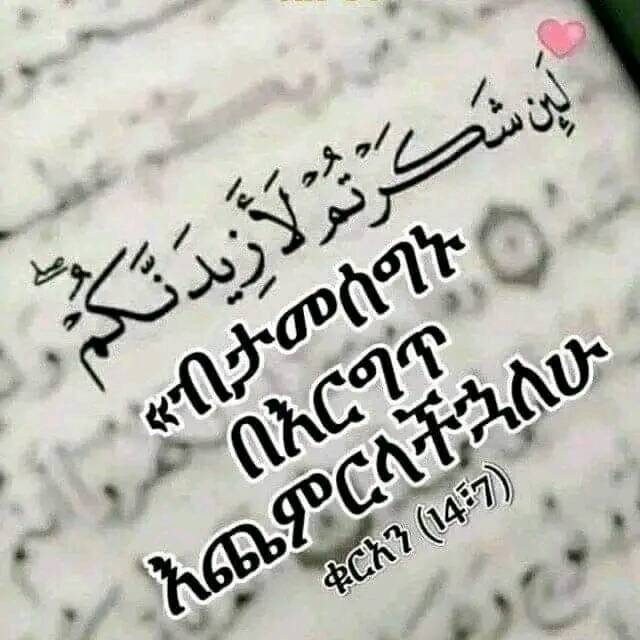 لَئِن شَكَرْتُمْ لَأَزِيدَنَّكُمْ ۖ
«ብታመሰግኑ
በእርግጥ
እጨምርላችኋለሁ
ቁርአን (14፥7)